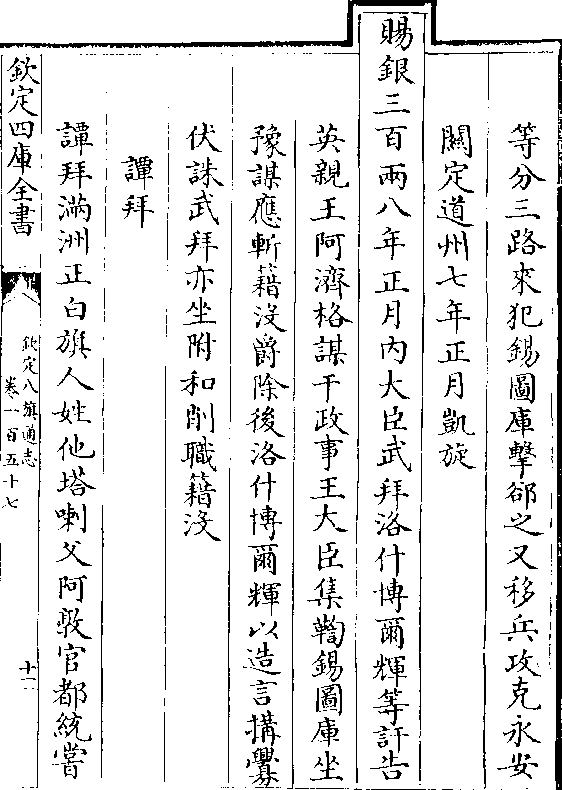 等分三路來犯錫圖庫擊郤之又移兵攻克永安
關定道州七年正月凱旋
賜銀三百兩八年正月内大臣武拜洛什博爾輝等訐告
英親王阿濟格謀干政事王大臣集鞫錫圖庫坐
豫謀應斬籍沒爵除後洛什博爾輝以造言搆釁
伏誅武拜亦坐附和削職籍沒
譚拜
譚拜滿洲正白旗人姓他塔喇父阿敦官都統嘗
欽定四庫全書
欽定八旗通志
卷一百五十七
十一